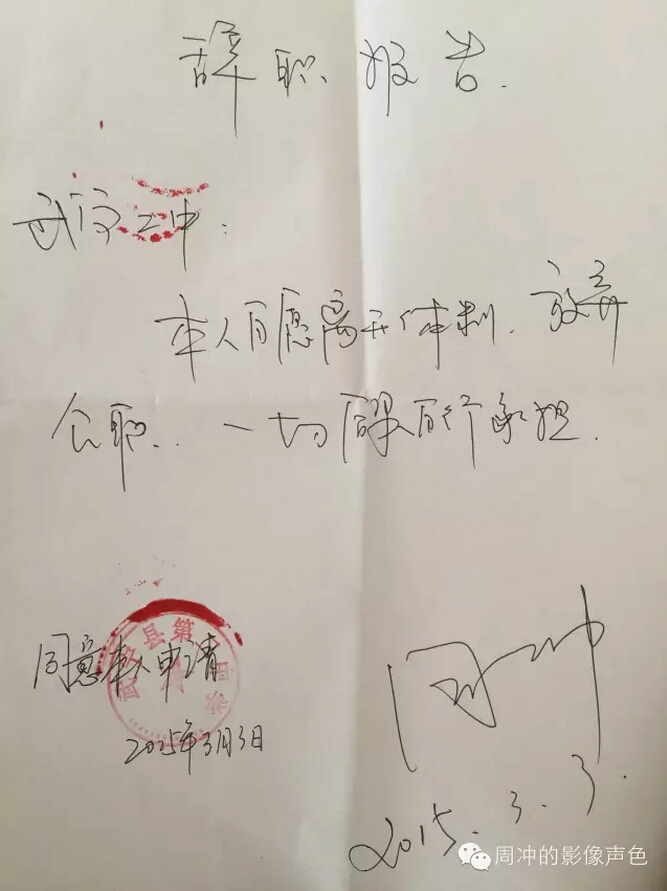 辞职报告.
武宁二中:
本人自愿离开体制、放弃
公职、一切后果自行承担.
县第
同意本人申请
2015年3月3日
周冲
2015.3.3.
周冲的影像声色